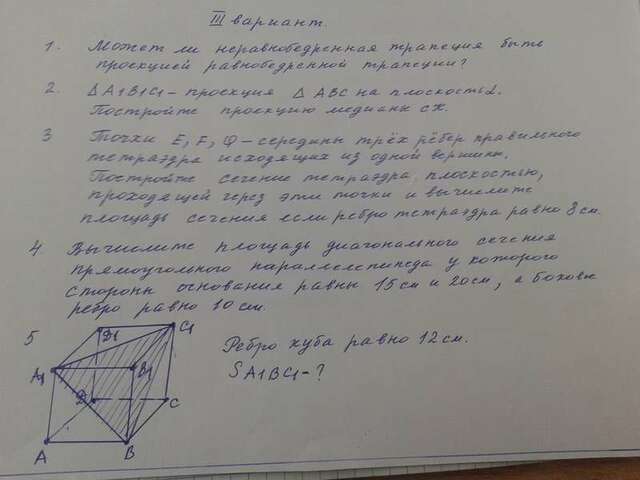 III вариант.
1. Может ли неравнобедренная трапеция быть
проекцией равнобедренной трапеции?
2. △A1B1C1 - проекция △ABC на плоскость α.
Постройте проекцию медианы СК.
3 Точки E, F, Q - середины трёх рёбер правильного
тетраэдра исходящих из одной вершины.
Постройте сечение тетраэдра плоскостью,
проходящей через эти точки и вычислите
площадь сечения если ребро тетраэдра равно 8 см.
4 Вычислите площадь диагонального сечения
прямоугольного параллелепипеда у которого
стороны основания равны 15 см и 20 см, а боковое
ребро равно 10 см.
5
D1
C1
A1
B1
D
C
A
B
Ребро куба равно 12 см.
SA1BC1 - ?